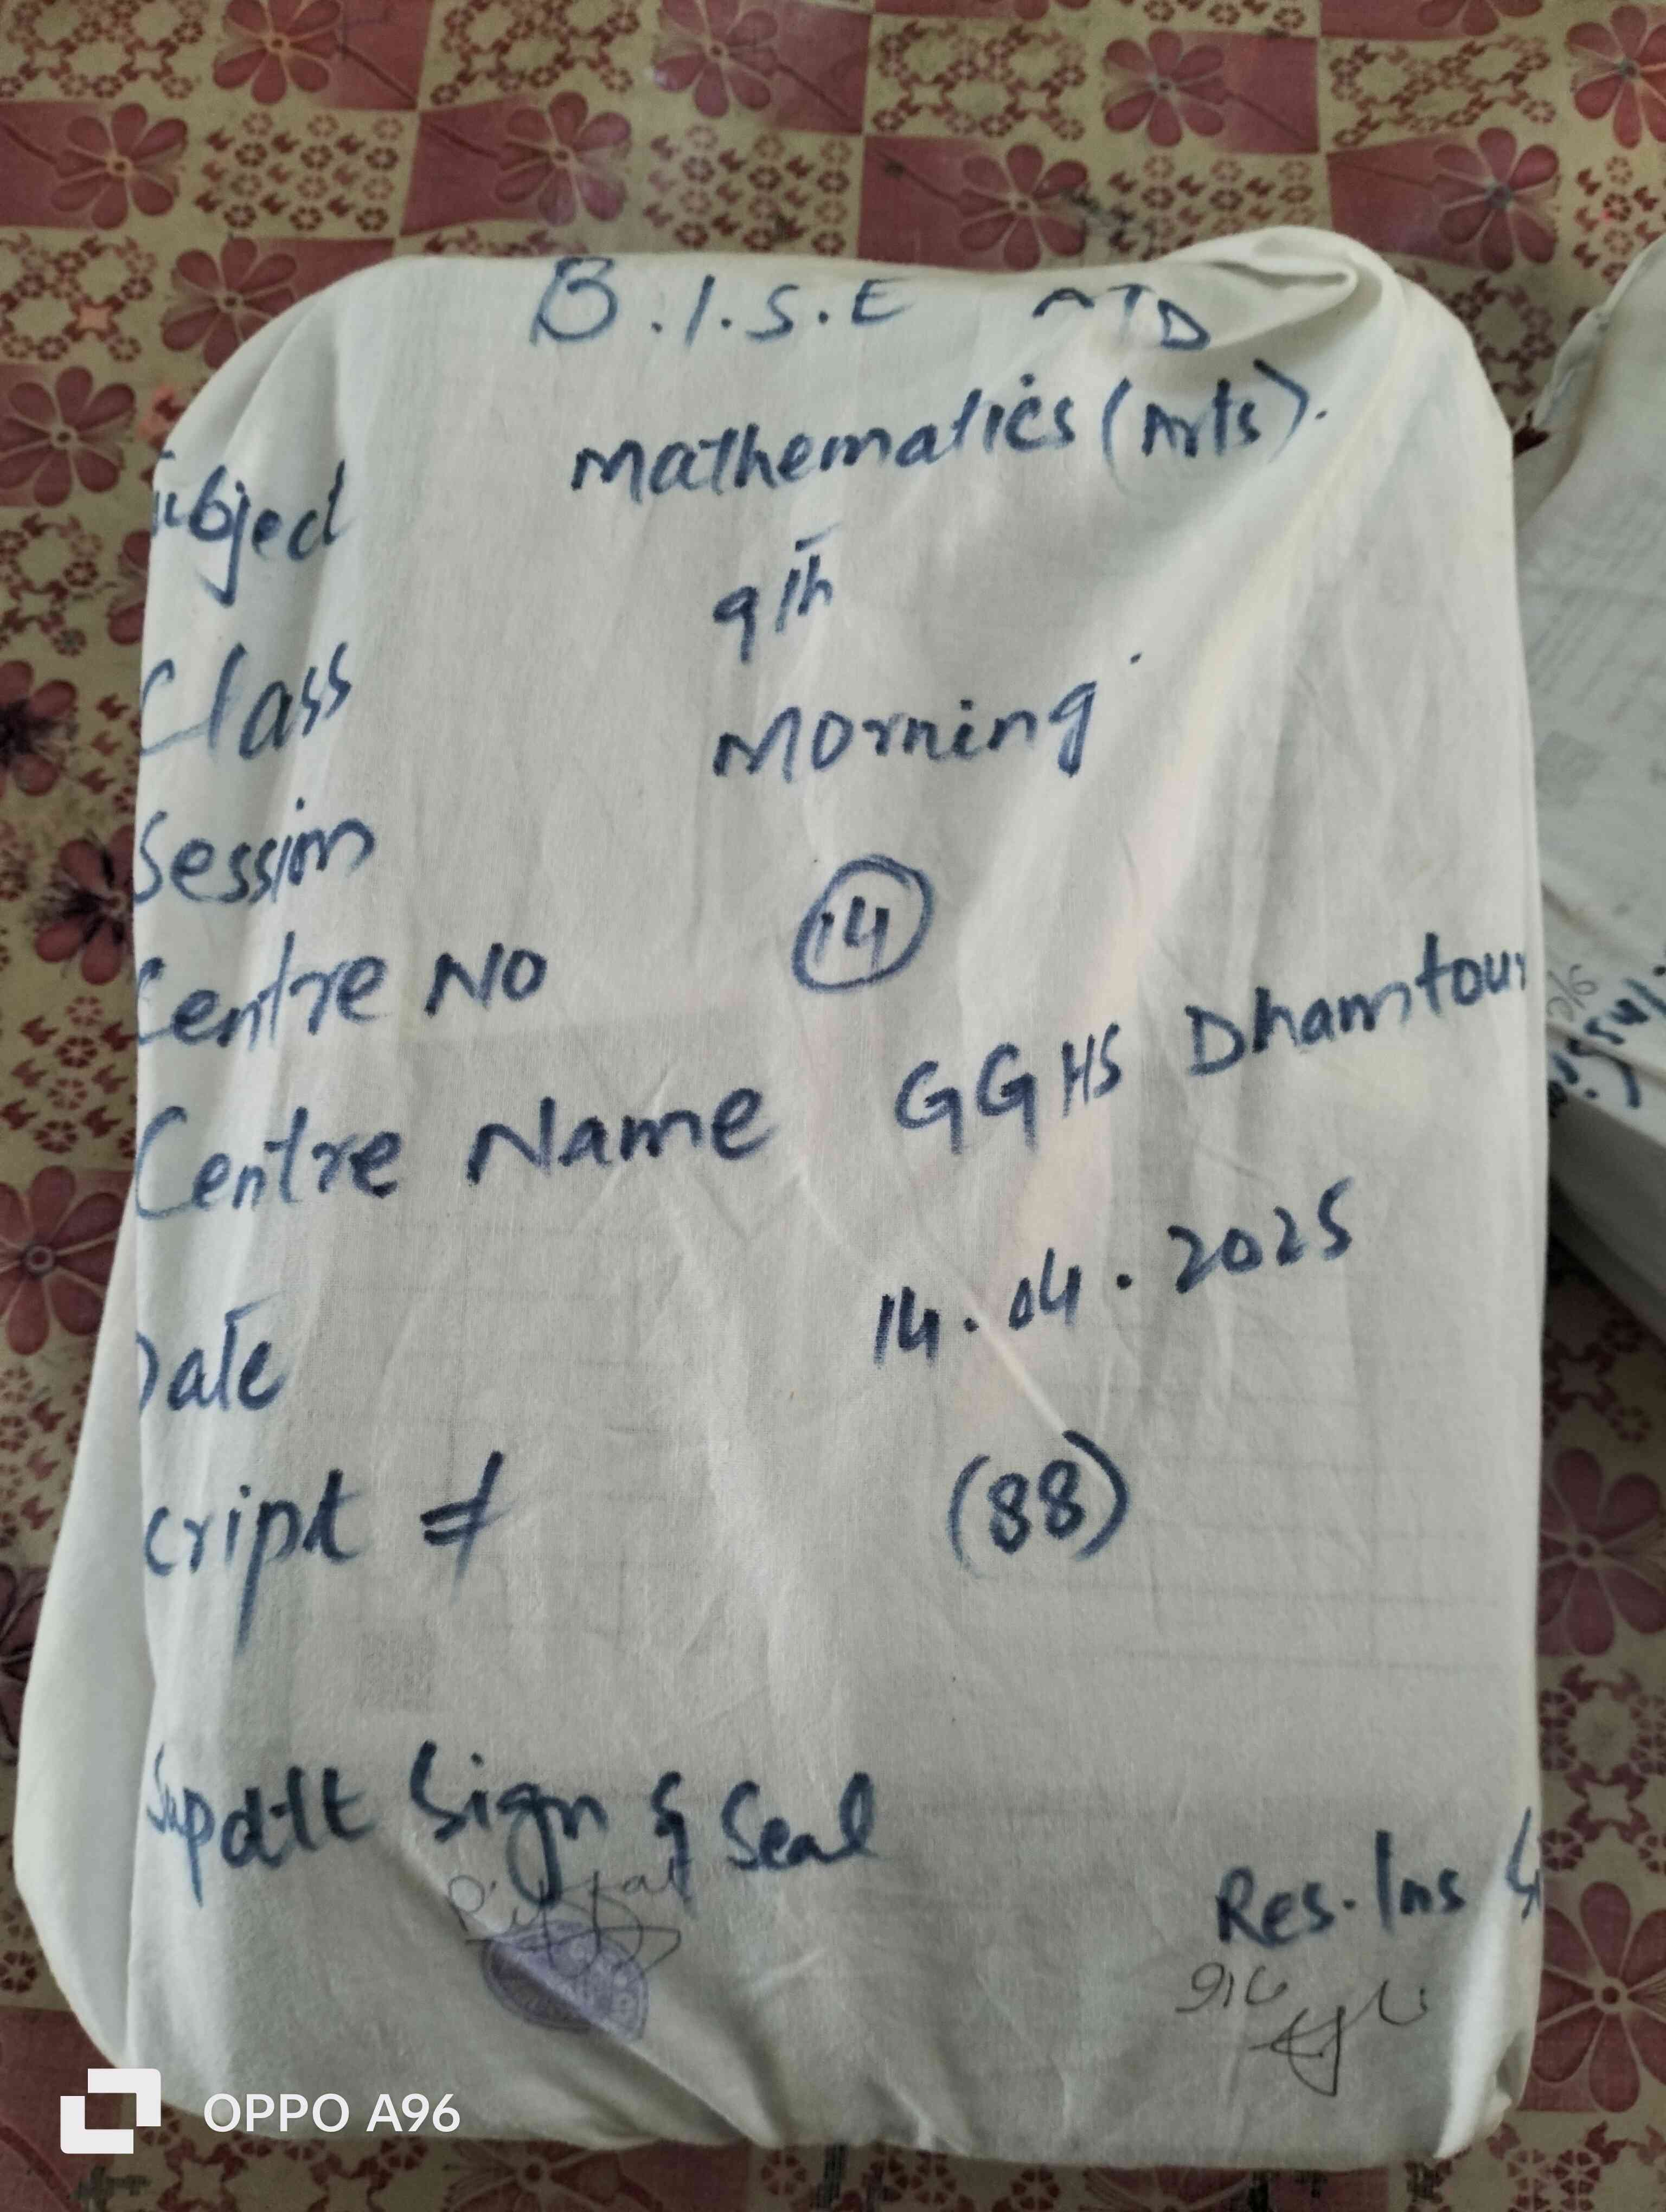 B.I.S.E ATD
Subject Mathematics (Arts).
Class 9th
Session Morning
Centre No 14
Centre Name GGHS Dhamtour
Date 14.04.2025
cript # (88)
Supdtt Sign & Seal
Res. Ins
OPPO A96